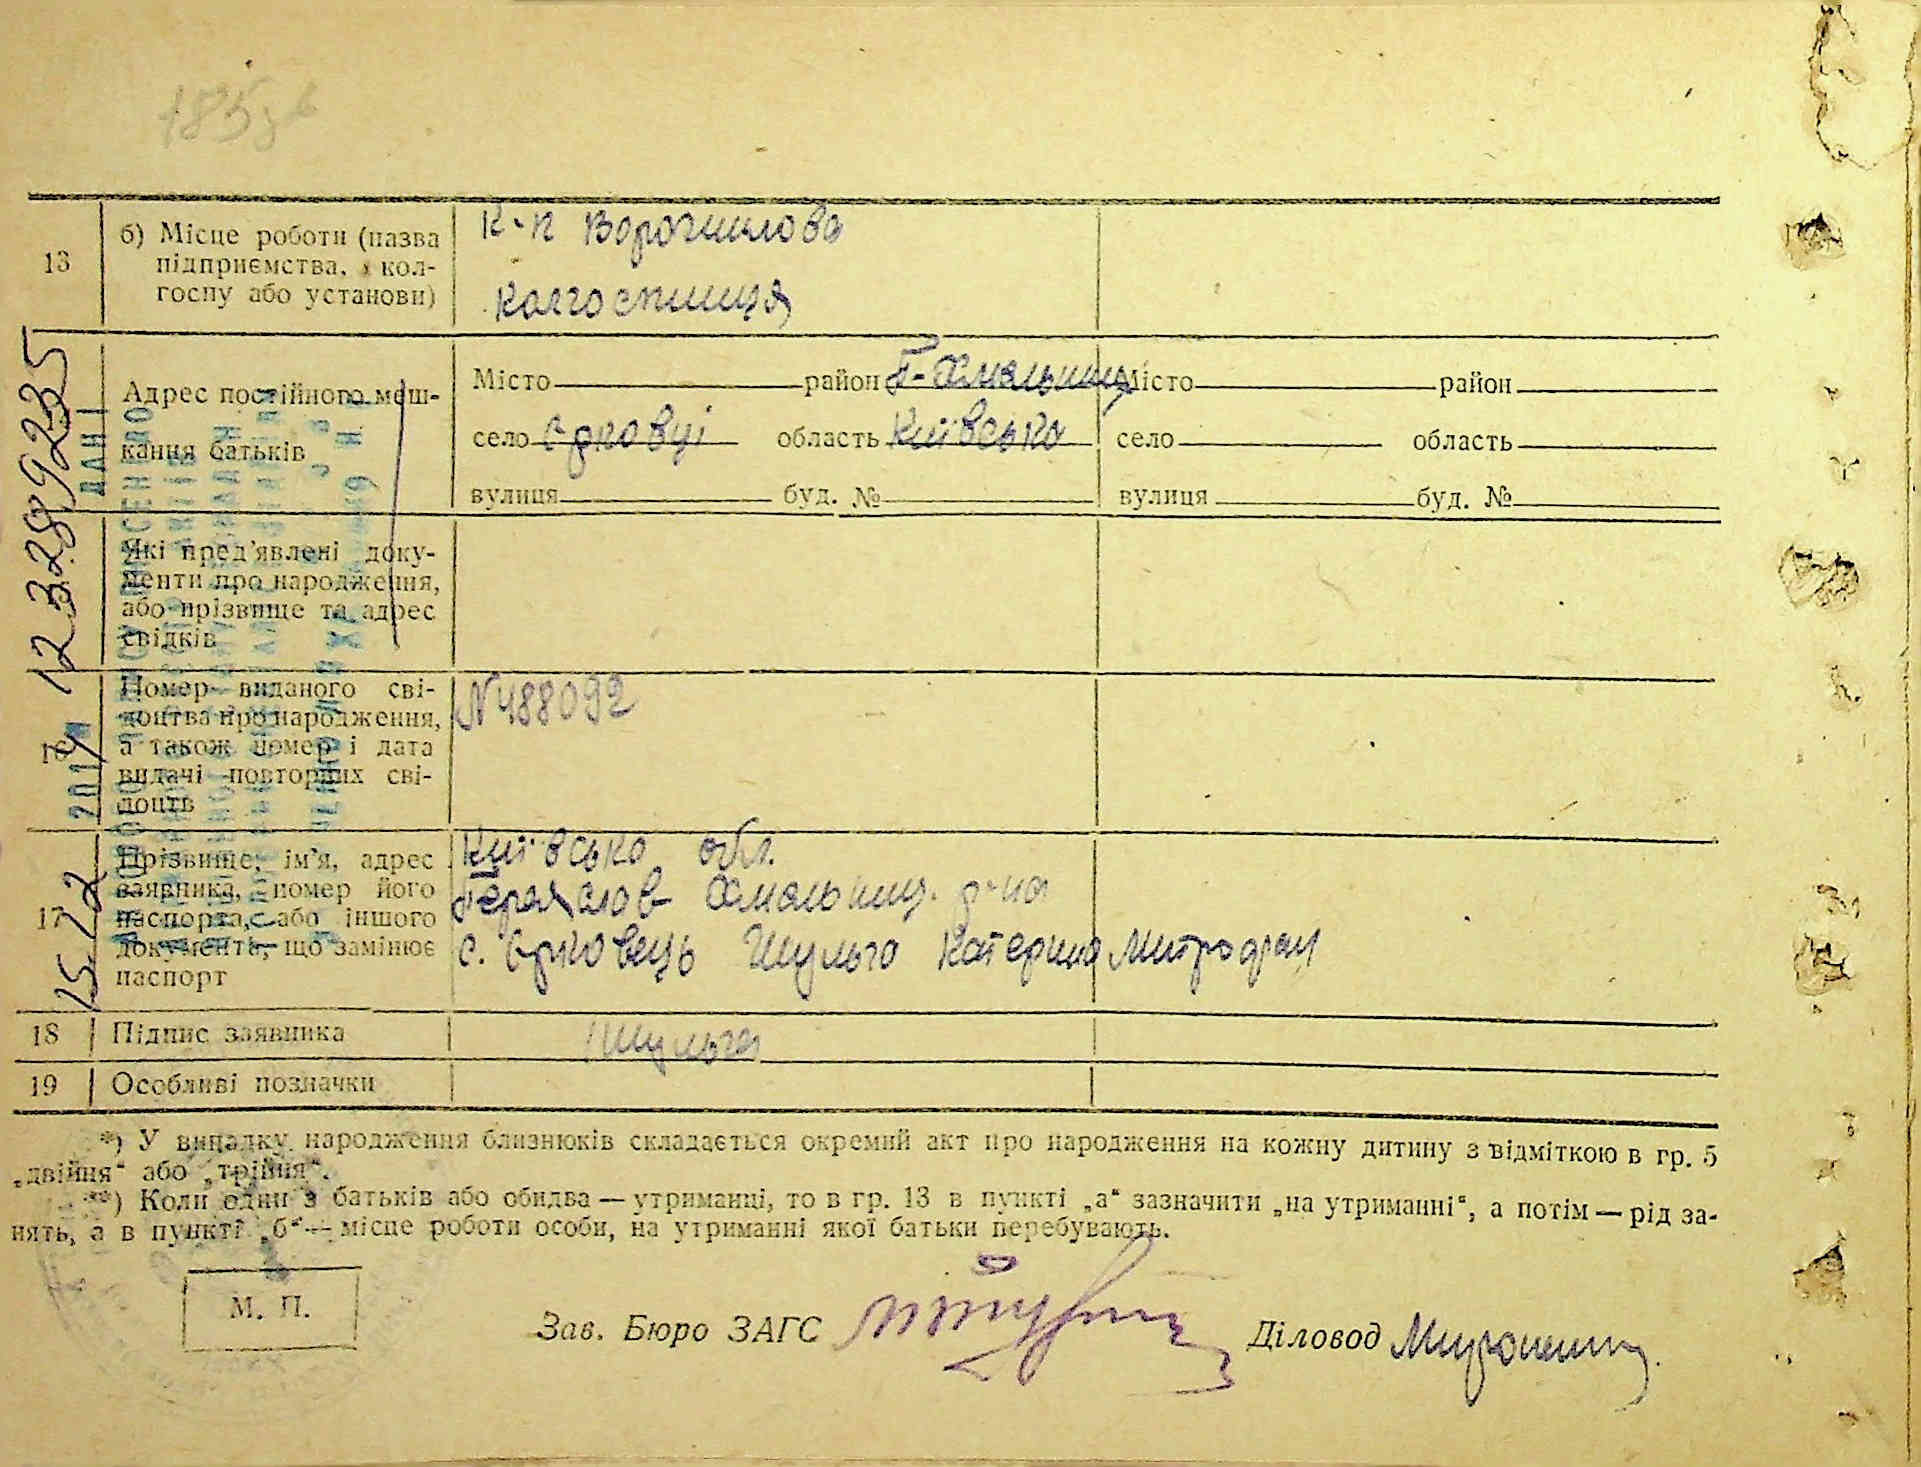 185 зв
13
б) Місце роботи (назва
підприємства, кол-
госпу або установи)
К-п Ворошилова
колгоспниця
Адрес постійного меш-
кання батьків
Місто район П-Хмельниц
село Єрковці область Київська
вулиця буд. №
Місто район
село область
вулиця буд. №
Які пред'явлені доку-
менти про народження,
або прізвище та адрес
свідків
16
Номер виданого сві-
доцтва про народження,
а також номер і дата
видачі повторних сві-
доцтв
N 488092
17
Прізвище, ім'я, адрес
заявника, номер його
паспорта, або іншого
документа, що замінює
паспорт
Київсько обл.
Переяслов Хмельниц. р-на
с. Єрковець Шульга Катерина Митрофан
18 Підпис заявника
Шульга
19 Особливі позначки
*) У випадку народження близнюків складається окремий акт про народження на кожну дитину з відміткою в гр. 5
„двійня“ або „трійня“.
**) Коли один з батьків або обидва — утриманці, то в гр. 13 в пункті „а“ зазначити „на утриманні“, а потім — рід за-
нять, а в пункті „б“ — місце роботи особи, на утриманні якої батьки перебувають.
М. П.
Зав. Бюро ЗАГС
Діловод
12 3289235
15 12 2014